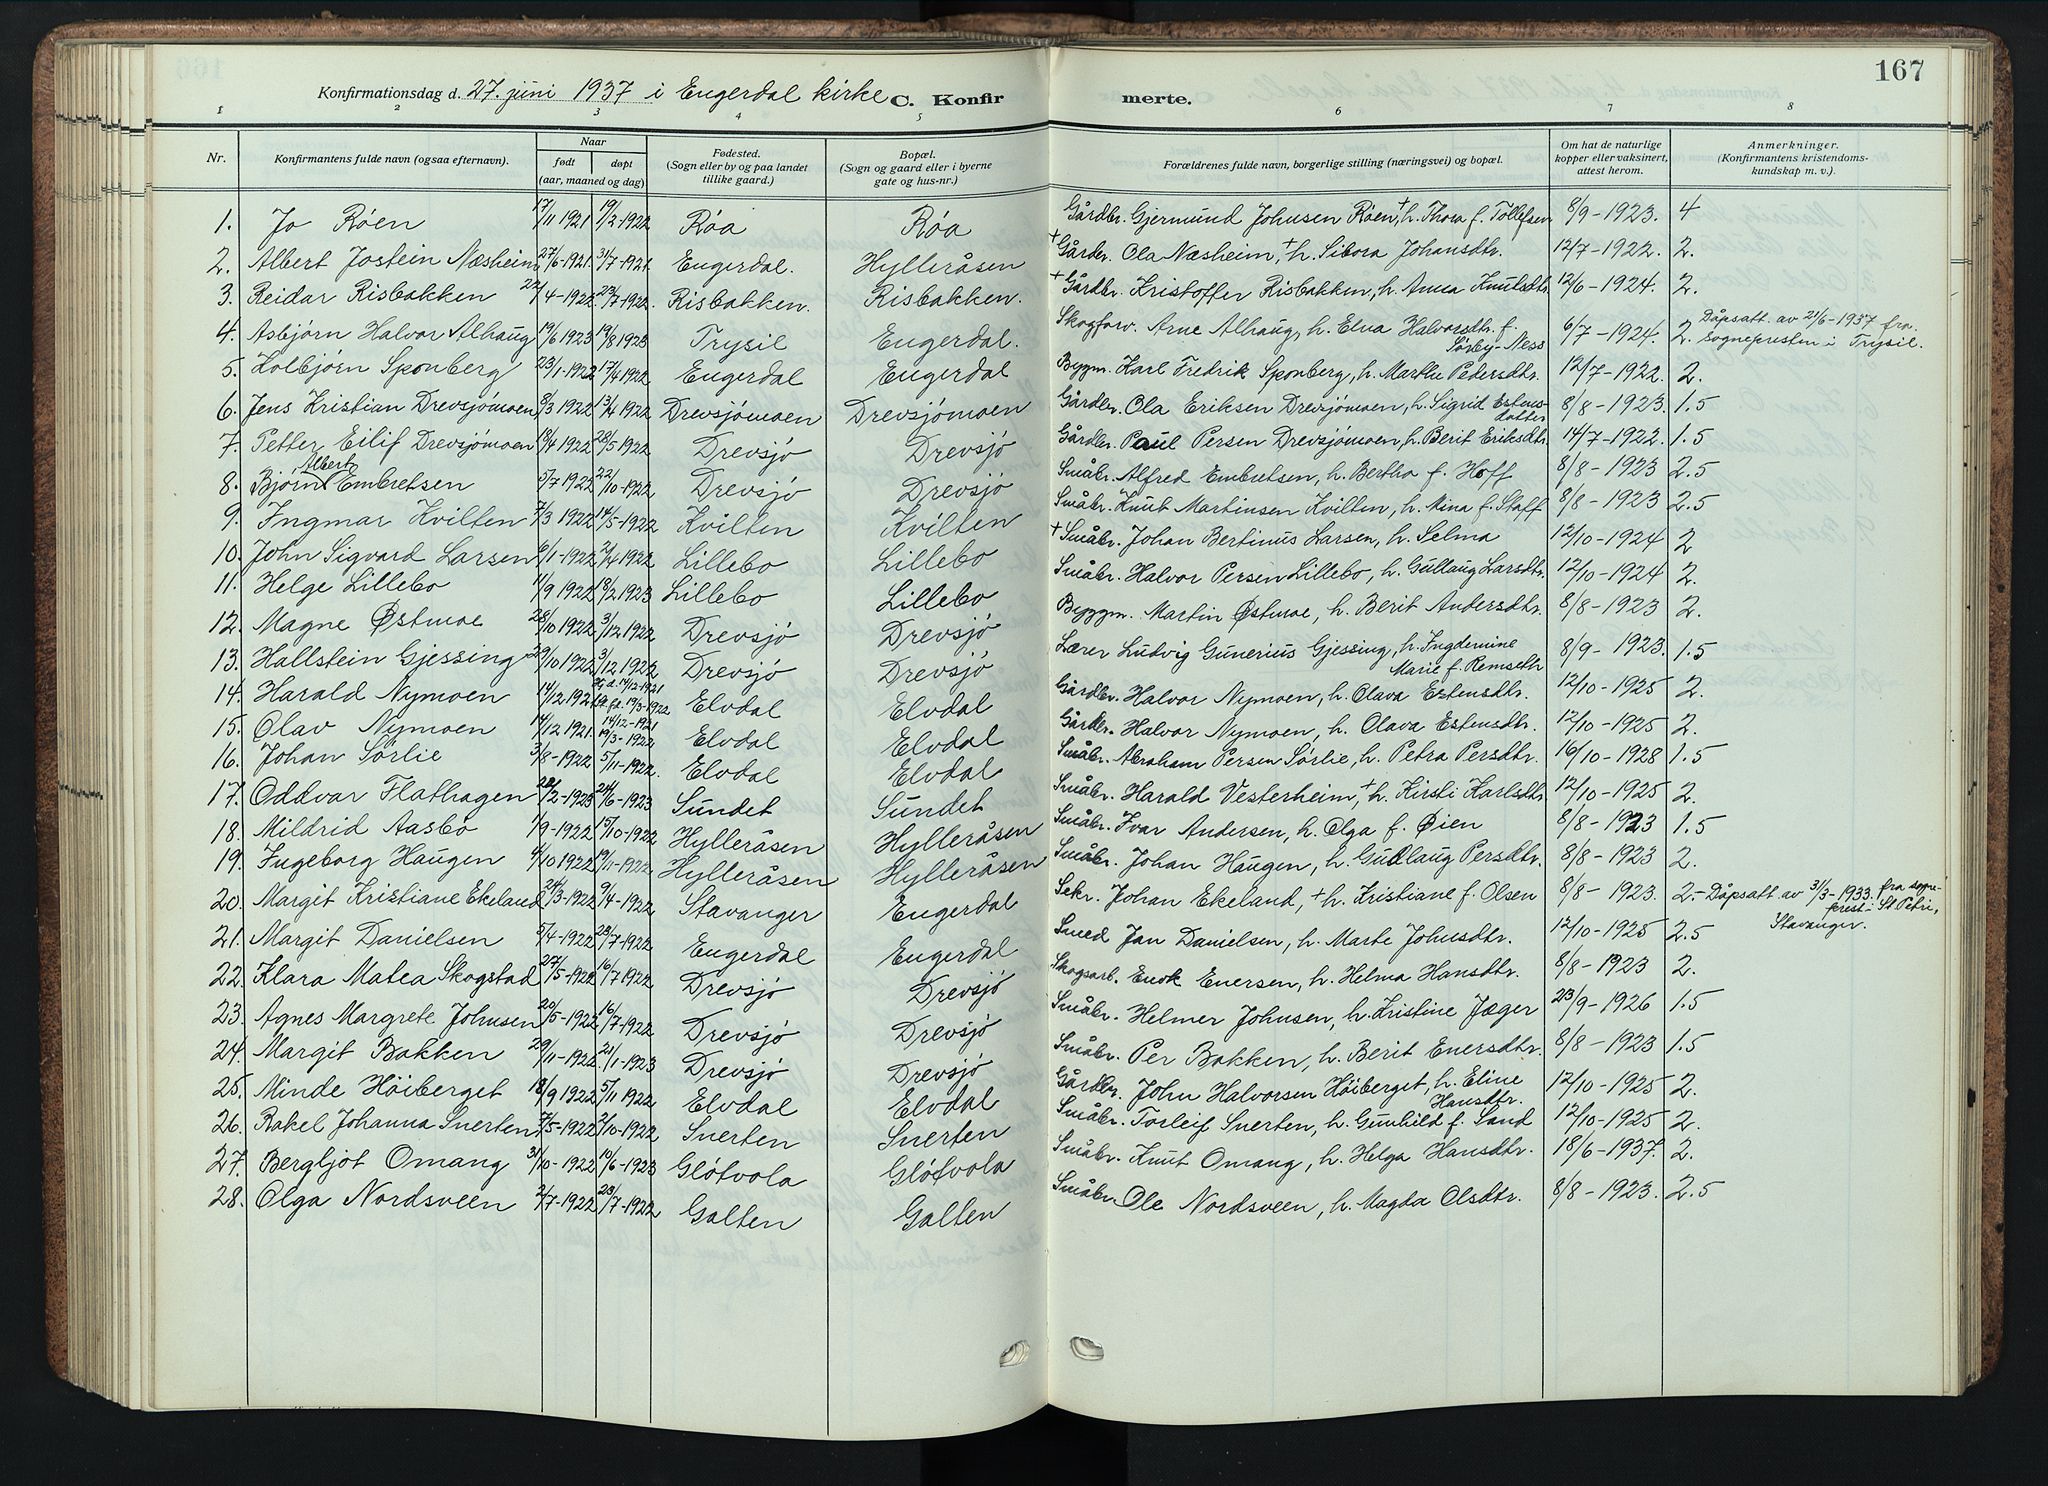 167
Konfirmationsdag d. 27. juni 1937 i Engerdal kirke C. Konfirmerte.
1 2 3 4 5 6 7 8
Nr. Konfirmantens fulde navn (ogsaa efternavn). Naar født døpt (aar, maaned og dag) Fødested. (Sogn eller by og paa landet tillike gaard.) Bopæl. (Sogn og gaard eller i byerne gate og hus-nr.) Forældrenes fulde navn, borgerlige stilling (næringsvei) og bopæl. Om hat de naturlige kopper eller vaksinert, attest herom. Anmerkninger. (Konfirmantens kristendomskundskap m. v.).
1. Jo Røen 17/11 1921 19/2-1922 Røa Røa Gårdbr. Gjermund Johnsen Røen, + h. Thora f. Tollefsen 8/9-1923. 4
2. Albert Jostein Næsheim 27/6-1921 31/7-1921. Engerdal. Hylleråsen + Gårdbr. Ola Næsheim, + h. Sibora Johansdtr. 12/7-1922. 2.
3. Reidar Risbakken 22/4-1922 23/7-1922. Risbakken. Risbakken. + Gårdbr. Kristoffer Risbakken, h. Anna Knutsdtr. 12/6-1924. 2.
4. Asbjørn Halvor Alhaug 19/6 1923 19/8 1923 Trysil Engerdal. Skogforv. Arne Alhaug, h. Elna Halvorsdtr. f. Sørby-Ness 6/7-1924. 2. Dåpsatt. av 21/6-1937 fra sognepresten i Trysil.
5. Kolbjørn Sponberg 23/1-1922 17/4 1922 Engerdal Engerdal Byggm. Karl Fredrik Sponberg, h. Marthe Pedersdtr. 12/7-1922. 2.
6. Jens Kristian Drevsjømoen 8/3 1922 13/4 1922 Drevsjømoen Drevsjømoen Gårdbr. Ola Eriksen Drevsjømoen, h. Sigrid Estensdatter 8/8-1923. 1.5
7. Petter Eilif Drevsjømoen 19/4 1922 28/5 1922 Drevsjø Drevsjø Gårdbr. Paul Persen Drevsjømoen, h. Berit Eriksdtr. 14/7-1922. 1.5
8. Bjørn Albert Embretsen 5/7 1922 22/10-1922 Drevsjø Drevsjø Småbr. Alfred Embretsen, h. Bertha f. Hoff 8/8-1923 2.5
9. Ingmar Kvilten 7/3 1922 14/5-1922 Kvilten Kvilten Småbr. Knut Martinsen Kvilten, h. Nina f. Staff 8/8-1923 2.5
10. John Sigvard Larsen 2/4 1922 Lillebo Lillebo + Småbr. Johan Bertinus Larsen, h. Selma 12/10-1924 2
11. Helge Lillebo 11/9 1922 18/2 1923 Lillebo Lillebo Småbr. Halvor Persen Lillebo, h. Gullaug Larsdtr. 12/10-1924 2.
12. Magne Østmoe 28/10 1922 3/12 1922 Drevsjø Drevsjø Byggm. Martin Østmoe, h. Berit Andersdtr. 8/8-1923 2.
13. Hallstein Gjessing 29/10 1922 3/12 1922 Drevsjø Drevsjø Lærer Ludvig Gunerius Gjessing, h. Ingdemine Marie f. Remseth 8/9-1923. 1.5
14. Harald Nymoen 14/12 1921 14/12-1921 19/3-1922 Elvdal Elvdal Gårdbr. Halvor Nymoen, h. Olava Estensdtr. 12/10-1925 2.
15. Olav Nymoen 14/12 1921. 14/12-1921 19/3-1922 Elvdal Elvdal Gårdbr. Halvor Nymoen, h. Olava Estensdtr. 12/10-1925 2.
16. Johan Sørlie 31/8-1922 5/11-1922. Elvdal Elvdal Småbr. Abraham Persen Sørlie, h. Petra Persdtr. 16/10-1928 1.5
17. Oddvar Flathagen 22/2-1923 24/6-1923 Sundet Sundet Småbr. Harald Vesterheim, + h. Kirsti Karlsdtr. 12/10-1925 2.
18. Mildrid Aasbø 1/9-1922 15/10-1922 Hylleråsen Hylleråsen Småbr. Ivar Andersen, h. Olga f. Øien 8/8-1923 1.5
19. Ingeborg Haugen 4/10 1922 19/11-1922 Hylleråsen Hylleråsen Småbr. Johan Haugen, h. Gudlaug Persdtr. 8/8-1923 2.
20. Margit Kristiane Ekeland 24/3-1922 9/4-1922 Stavanger Engerdal Sekr. Johan Ekeland, + h. Kristiane f. Olsen 8/8-1923. 2.- Dåpsatt av 31/3-1933. fra sogneprest i St. Petri, Stavanger.
21. Margit Danielsen 5/4-1922 23/7-1922 Engerdal Engerdal Smed Jan Danielsen, h. Marte Johnsdtr. 12/10-1925 2.5
22. Klara Matea Skogstad 27/5-1922 16/7 1922 Drevsjø Drevsjø Skogsarb. Enok Enersen, h. Helma Hansdtr. 8/8-1923 2.
23. Agnes Margrete Johnsen 20/5-1922 16/7-1922 Drevsjø Drevsjø Småbr. Helmer Johnsen, h. Kristine Jæger 23/9-1926 1.5
24. Margit Bakken 29/11-1922 21/1-1923 Drevsjø Drevsjø Småbr. Per Bakken, h. Berit Enersdtr. 8/8-1923 1.5
25. Minde Höiberget 18/9 1922 5/11 1922 Elvdal Elvdal Gårdbr. John Halvorsen Höiberget, h. Eline Hansdtr. 12/10-1925 2.
26. Rakel Johanna Snerten 7/5-1922 2/10-1922 Snerten Snerten Småbr. Torleif Snerten, h. Gunhild f. Sand 12/10-1925 2.
27. Bergljot Omang 31/10-1922 10/6-1923 Gløtvola Gløtvola Småbr. Knut Omang, h. Helga Hansdtr. 18/6-1937. 2.
28. Olga Nordsveen 2/7-1922 23/7-1922 Galten Galten Småbr. Ole Nordsveen, h. Magda Olsdtr. 8/8-1923. 2.5